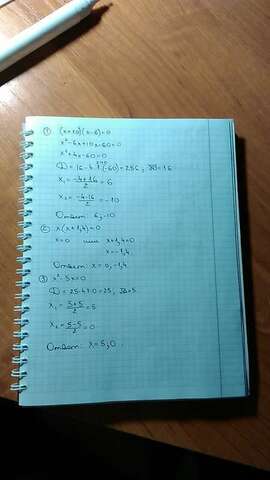 ① (x+10)(x-6)=0
x²-6x+10x-60=0
x²+4x-60=0
D=16-4·1·(-60)=256, √D=16
x₁=(-4+16)/2=6
x₂=(-4-16)/2=-10
Ответ: 6;-10
② x(x+1,4)=0
x=0 или x+1,4=0
x=-1,4
Ответ: x=0,-1,4
③ x²-5x=0
D=25-4·1·0=25, √D=5
x₁=(5+5)/2=5
x₂=(5-5)/2=0
Ответ: x=5;0